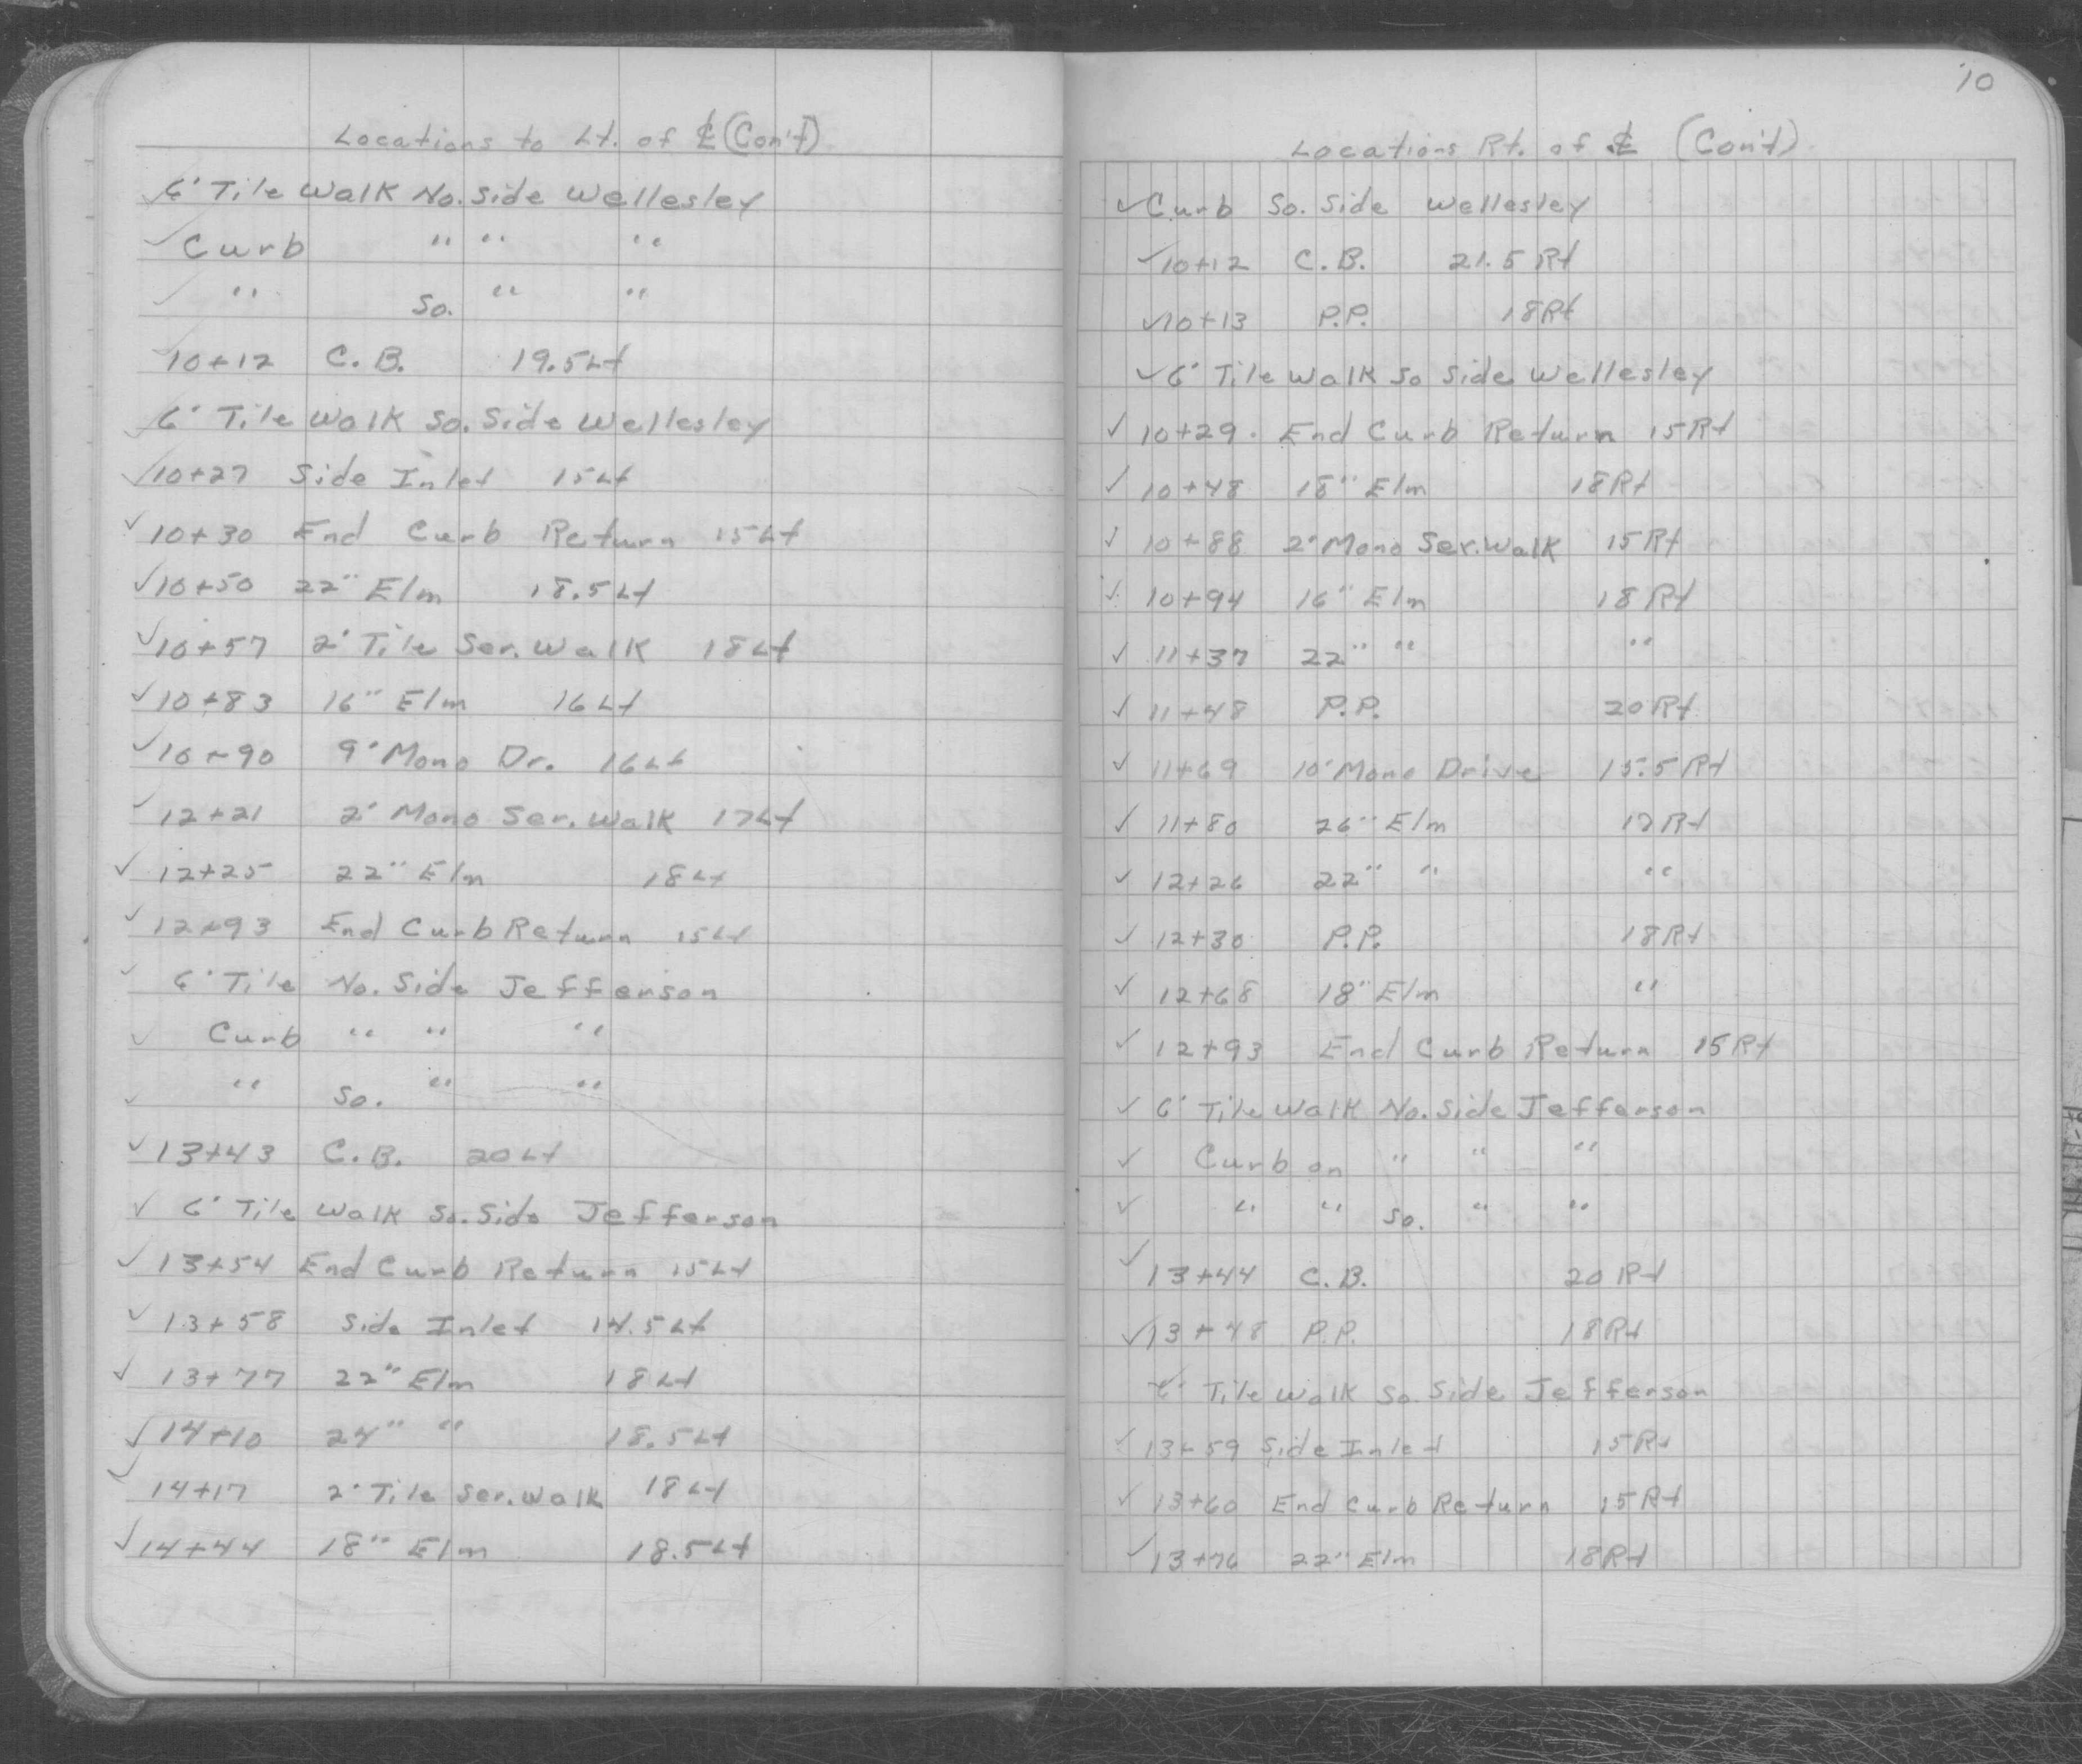 Locations to Lt. of ℄ (Con't)
✓ 6' Tile Walk No. Side Wellesley
✓ Curb " " "
✓ " So. " "
✓ 10+12 C.B. 19.5 Lt
✓ 6' Tile Walk So. Side Wellesley
✓ 10+27 Side Inlet 15 Lt
✓ 10+30 End Curb Return 15 Lt
✓ 10+50 22" Elm 18.5 Lt
✓ 10+57 2' Tile Ser. Walk 18 Lt
✓ 10+83 16" Elm 16 Lt
✓ 10+90 9' Mono Dr. 16 Lt
✓ 12+21 2' Mono Ser. Walk 17 Lt
✓ 12+25 22" Elm 18 Lt
✓ 12+93 End Curb Return 15 Lt
✓ 6' Tile No. Side Jefferson
✓ Curb " " "
✓ " So. " "
✓ 13+43 C.B. 20 Lt
✓ 6' Tile Walk So. Side Jefferson
✓ 13+54 End Curb Return 15 Lt
✓ 13+58 Side Inlet 14.5 Lt
✓ 13+77 22" Elm 18 Lt
✓ 14+10 24" " 18.5 Lt
✓ 14+17 2' Tile Ser. Walk 18 Lt
✓ 14+44 18" Elm 18.5 Lt
10
Locations Rt. of ℄ (Con't)
✓ Curb So. Side Wellesley
✓ 10+12 C.B. 21.5 Rt
✓ 10+13 P.P. 18 Rt
✓ 6' Tile Walk So Side Wellesley
✓ 10+29 End Curb Return 15 Rt
✓ 10+48 18" Elm 18 Rt
✓ 10+88 2' Mono Ser. Walk 15 Rt
✓ 10+94 16" Elm 18 Rt
✓ 11+37 22" " "
✓ 11+48 P.P. 20 Rt
✓ 11+69 10' Mono Drive 15.5 Rt
✓ 11+80 26" Elm 17 Rt
✓ 12+26 22" " "
✓ 12+30 P.P. 18 Rt
✓ 12+68 18" Elm "
✓ 12+93 End Curb Return 15 Rt
✓ 6' Tile Walk No. Side Jefferson
✓ Curb on " " "
✓ " " So. " "
✓ 13+44 C.B. 20 Rt
✓ 13+48 P.P. 18 Rt
✓ 6' Tile Walk So. Side Jefferson
✓ 13+59 Side Inlet 15 Rt
✓ 13+60 End Curb Return 15 Rt
✓ 13+76 22" Elm 18 Rt